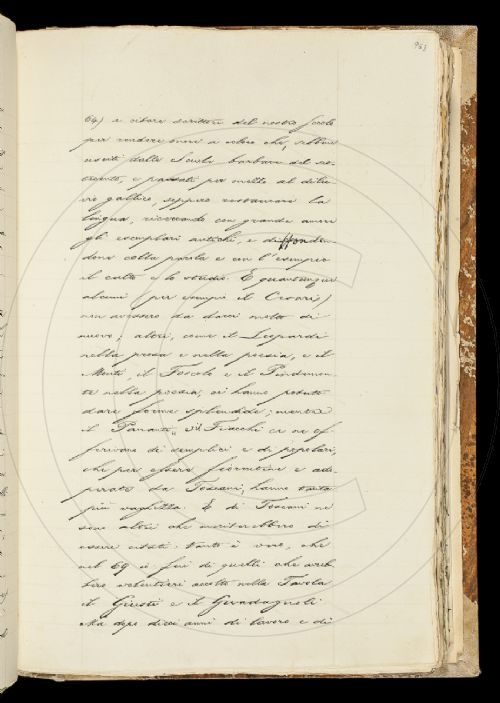 963
64) e citare scrittori del nostro secolo
per rendere onore a coloro che, sebbene
usciti dalla scuola barbara del se-
cento, e passati per mezzo al dilu-
vio gallico, seppero restaurare la
lingua, ricercando con grande amore
gli esemplari antichi, e diffonden-
done colla parola e con l'esempio
il culto e lo studio. E quantunque
alcuni (per esempio il Cesari)
non avessero da darci molto di
nuovo; altri, come il Leopardi
nella prosa e nella poesia, e il
Monti, il Foscolo e il Pindemon-
te nella poesia, ci hanno potuto
dare forme splendide; mentre
il Pananti, il Fiacchi ce ne of-
ferivano di semplici e di popolari,
che per essere fiorentine e ado-
perate da Toscani, hanno
più vaghezza. E di Toscani ne
sono altri che meriterebbero di
essere citati: tanto è vero, che
nel 69 ci fu di quelli che avreb-
bero volentieri accolto nella Tavola
il Giusti e il Guadagnoli
Ma dopo dieci anni di lavoro e di